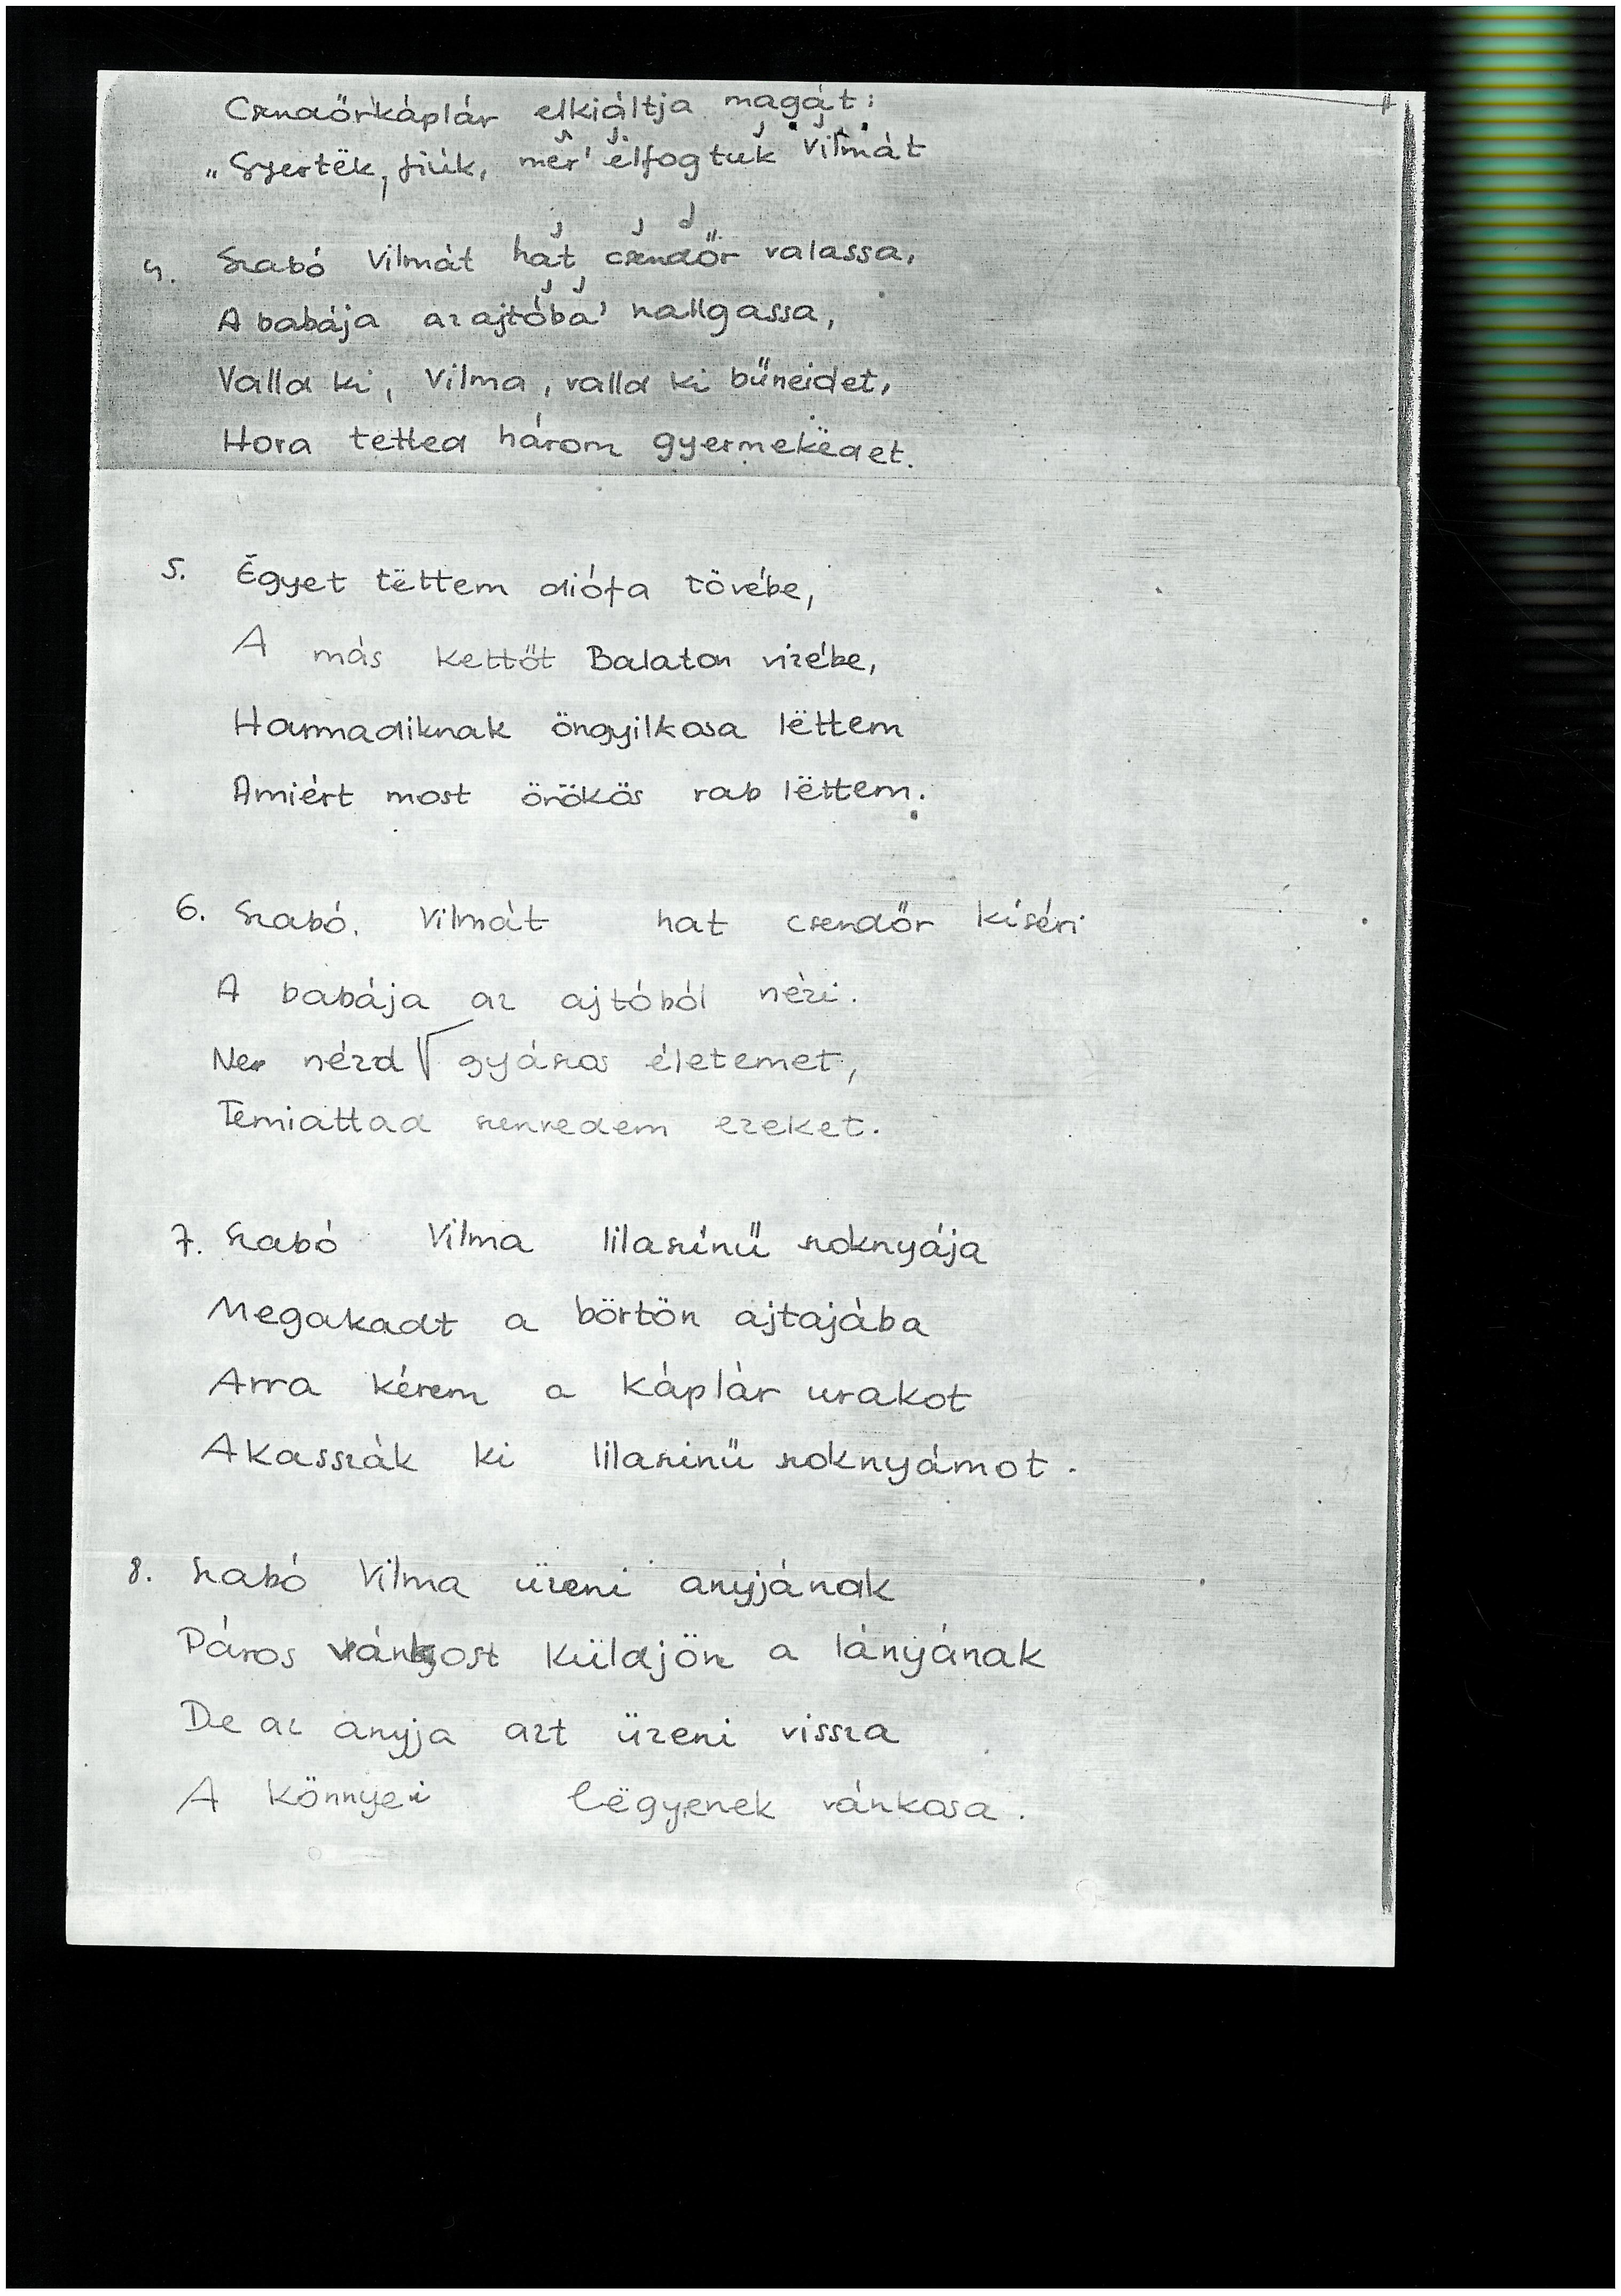 Csendőrkáplár elkiáltja magát:
„Gyertëk, fiúk, mer' elfogtuk Vilmát
4. Szabó Vilmát hat csendőr valassa,
A babája az ajtóba' hallgassa,
Valld ki, Vilma, valld ki bűneidet,
Hova tetted három gyermekëdet.
5. Ëgyet tëttem diófa tövébe,
A más kettőt Balaton vizébe,
Harmadiknak öngyilkosa lëttem
Amiért most örökös rab lëttem.
6. Szabó Vilmát hat csendőr kíséri
A babája az ajtóból nézi.
Ne nézd gyászos életemet,
Temiattad szenvedem ezeket.
7. Szabó Vilma lilaszínű szoknyája
Megakadt a börtön ajtajába
Arra kérem a káplár urakot
Akasszák ki lilaszinű szoknyámot.
8. Szabó Vilma üzeni anyjának
Páros vánkost küldjön a lányának
De az anyja azt üzeni vissza
A könnyei lëgyenek vánkosa.